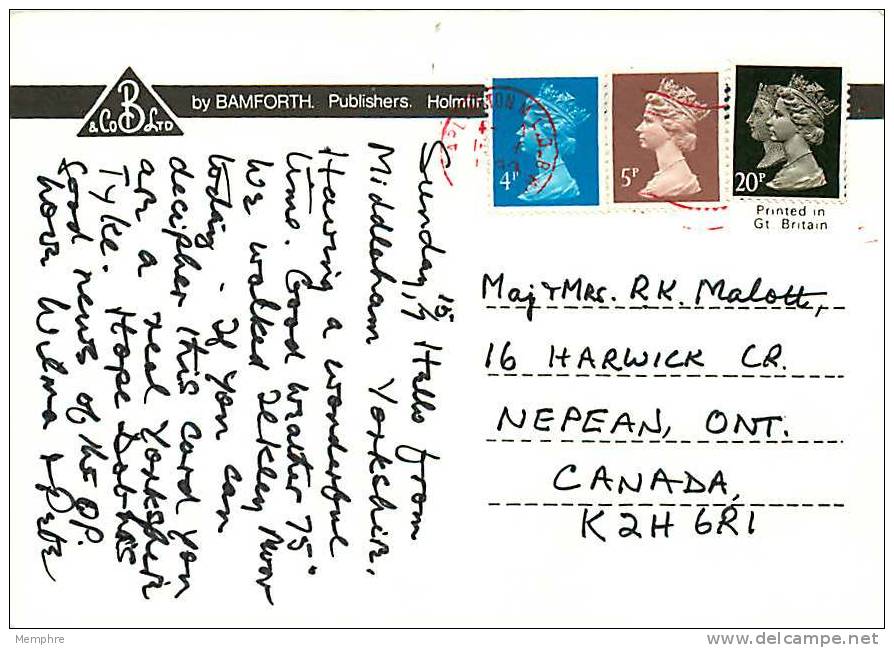 B
& Co LTD
by BAMFORTH. Publishers. Holmfir
4P
5P
20P
Printed in
Gt. Britain
Sunday, 15/7 Hallo from
Middleham Yorkshire,
Having a wonderful
time. Good weather 75°
We walked Ilkley Moor
today - If you can
decipher this card you
are a real Yorkshire
Tyke. Hope Bob has
Good news of the OP.
love Wilma & Pete
Maj & Mrs. R.K. Malott,
16 HARWICK CR.
NEPEAN, ONT.
CANADA,
K2H 6R1
Memphre
delcampe.net